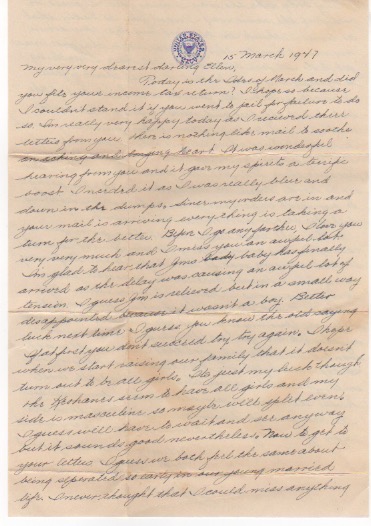 UNITED STATES NAVY
15 March 1947
My very very dearest darling Ellen,
Today is the Ides of March and did
you file your income tax return? I hope so because
I couldn't stand it if you went to jail for failure to do
so. I'm really very happy today as I received three
letters from you. There is nothing like mail to soothe
an aching and longing heart. It was wonderful
hearing from you and it gave my spirits a terrific
boost. I needed it as I was really blue and
down in the dumps. Since my orders are in and
your mail is arriving everything is taking a
turn for the better. Before I go any further, I love you
very very much and I miss you an awful lot.
I'm glad to hear that baby has finally
arrived as the delay was causing an awful lot of
tension. I guess is relieved but in a small way
disappointed because it wasn't a boy. Better
luck next time. I guess you know the old saying
If at first you don't succeed try try again. I hope
when we start raising our family that it doesn't
turn out to be all girls. It's just my luck though
the seem to have all girls and my
side is masculine so maybe we'll split even.
I guess we'll have to wait and see anyway
but it sounds good nevertheless. Now to get to
your letters I guess we both feel the same about
being separated so early in our young married
life. I never thought that I could miss anything